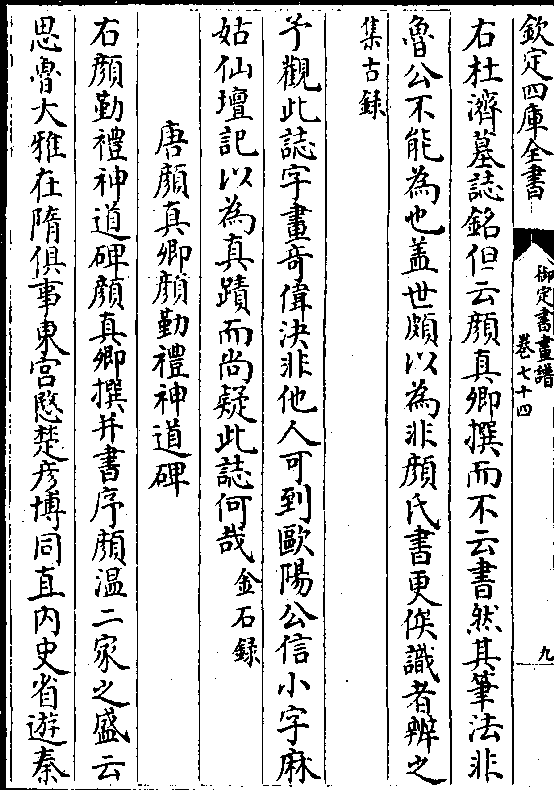 欽定四庫全書
御定書畫譜
卷七十四
九
右杜濟墓誌銘但云顔真卿撰而不云書然其筆法非
魯公不能為也盖世頗以為非顔氏書更俟識者辨之
集古録
予觀此誌字畫奇偉決非他人可到歐陽公信小字麻
姑仙壇記以為真蹟而尚疑此誌何哉金石録
唐顔真卿顔勤禮神道碑
右顔勤禮神道碑顔真卿撰并書序顔溫二家之盛云
思魯大雅在隋俱事東宮愍楚彦博同直内史省遊秦